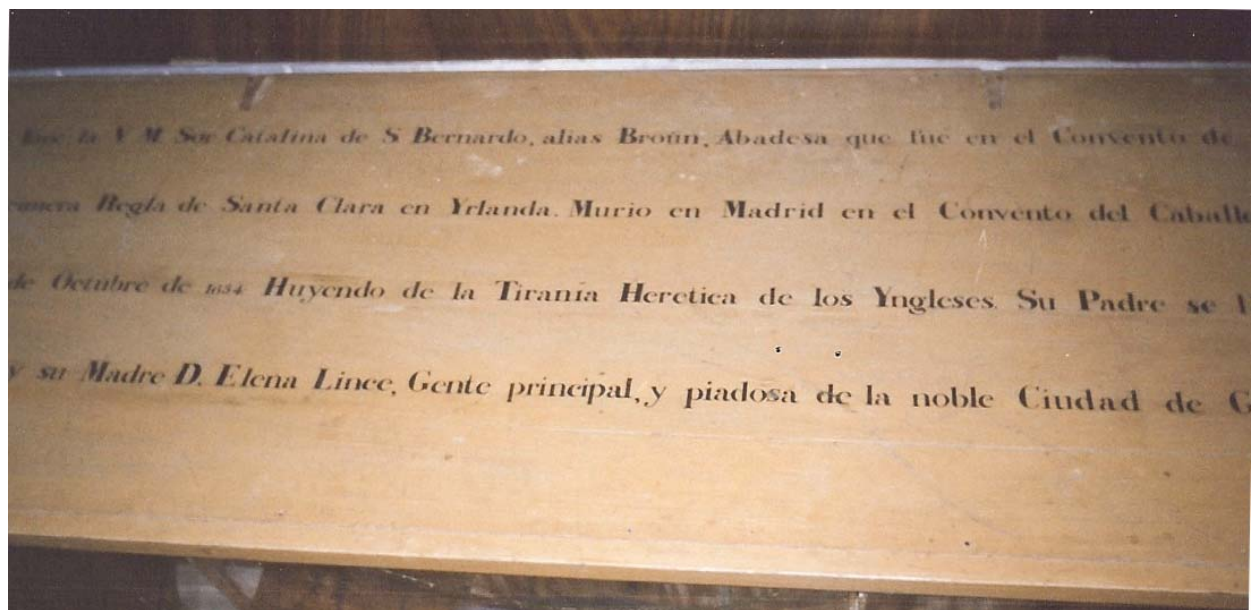 la V M Sor Catalina de S Bernardo, alias Broün, Abadesa que fue en el Convento de
Regla de Santa Clara en Yrlanda. Murio en Madrid en el Convento del Caballe
de Octubre de 1654 Huyendo de la Tirania Heretica de los Yngleses. Su Padre se l
y su Madre D. Elena Lince, Gente principal, y piadosa de la noble Ciudad de G